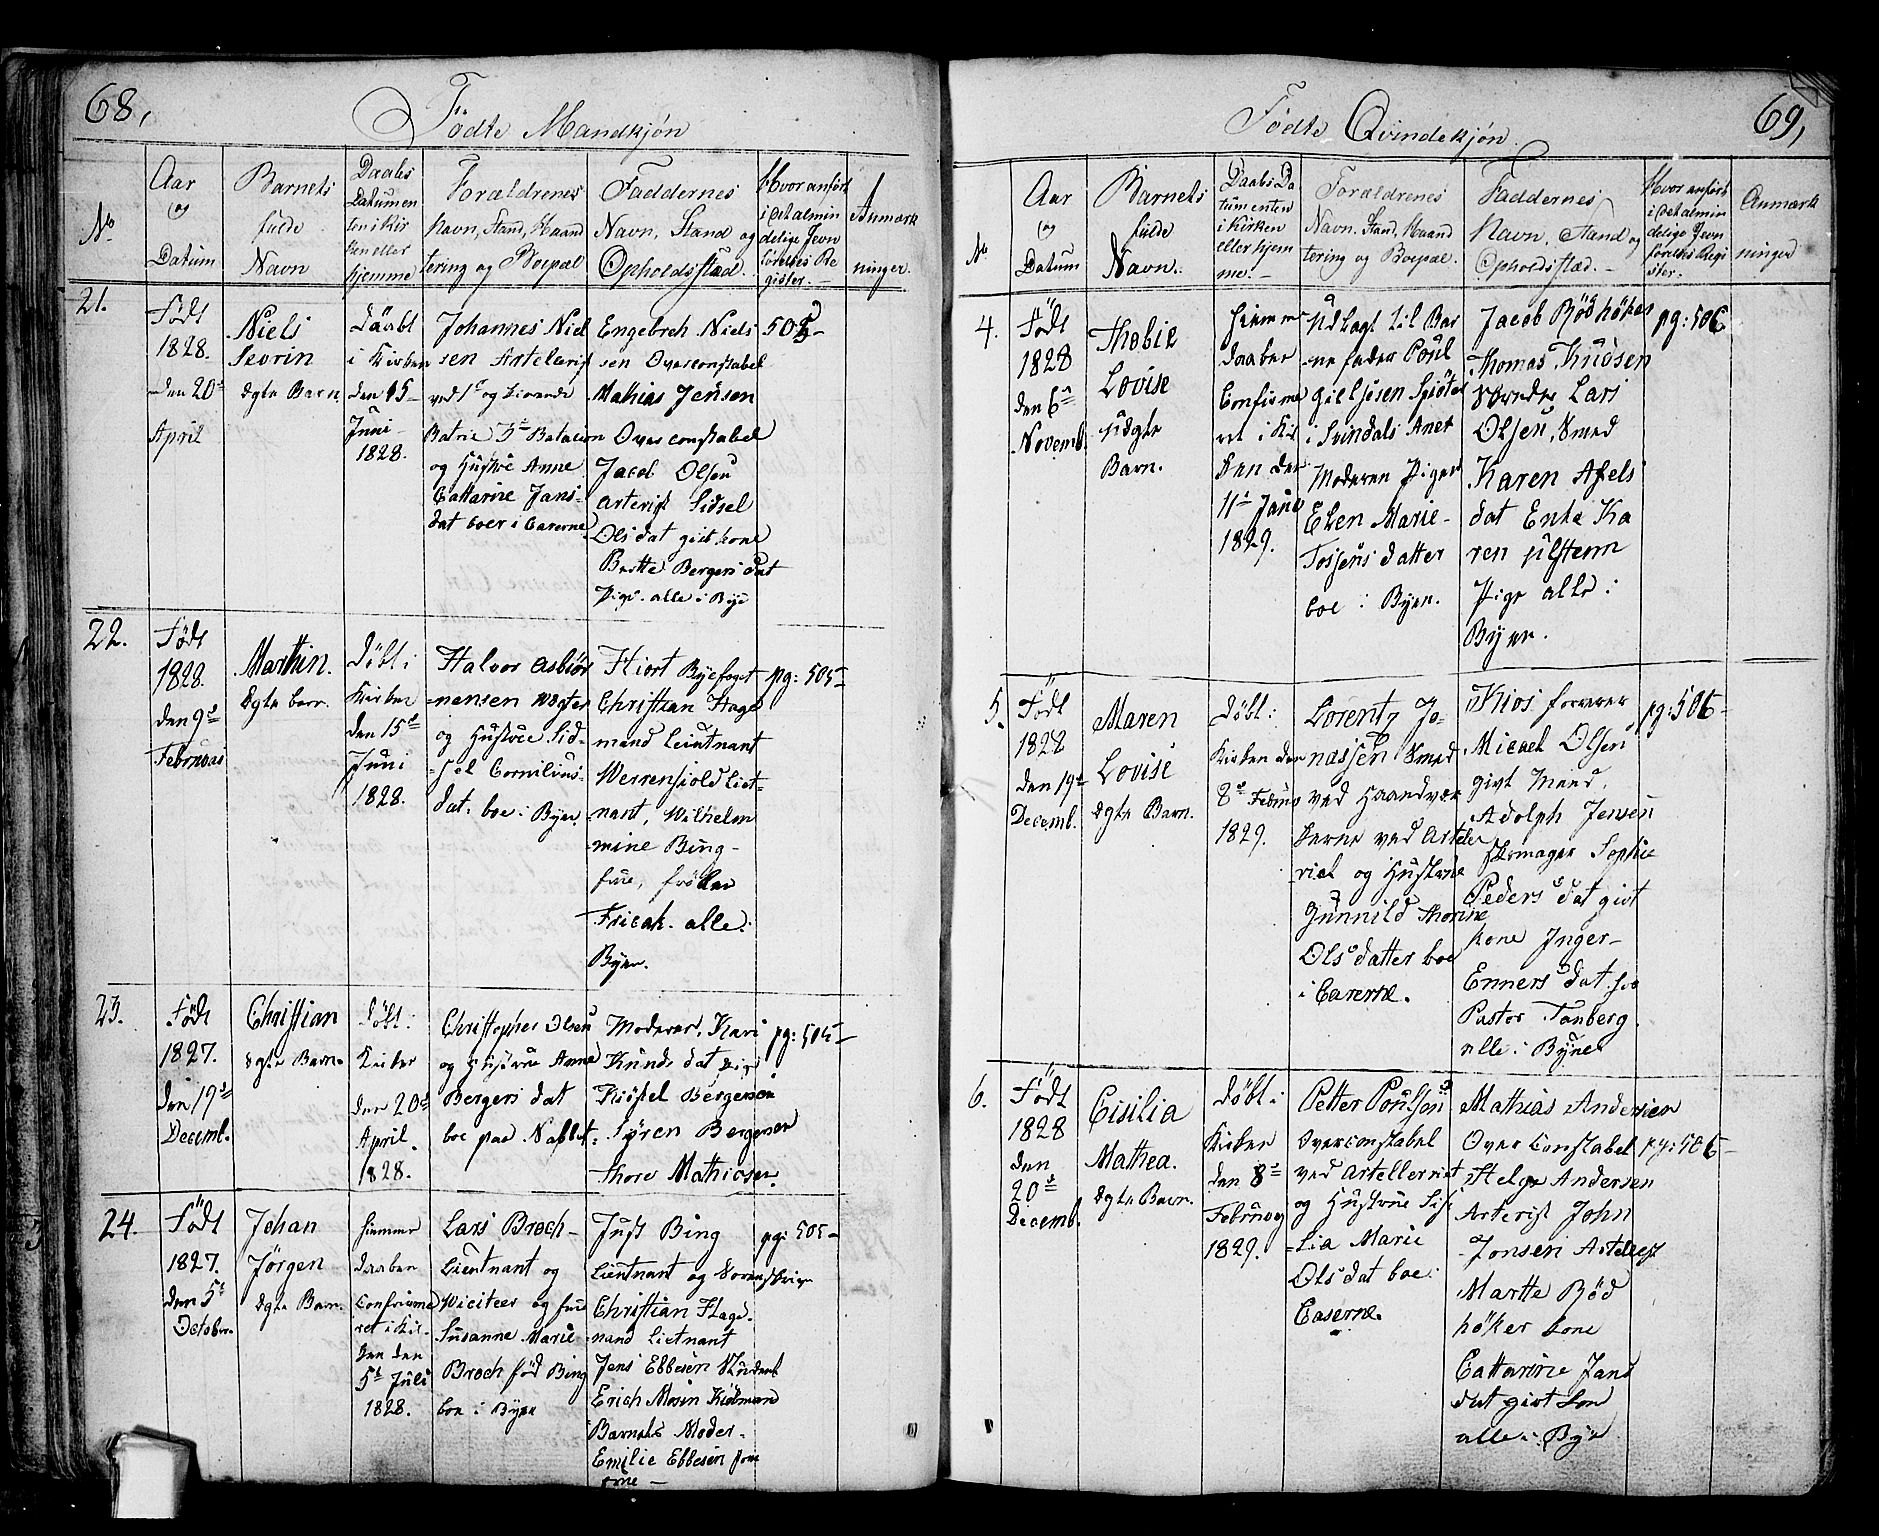 68,
Födte Mandkjön
No
Aar
og
Datum
Barnets
fulde
Navn
Daabs
Datumen
ten i Kir
ken eller
hjemme
Forældrenes
Navn, Stand, Haand
tering og Bopæl
Faddernes
Navn, Stand og
Opholdsstæd.
Hvor anfört
i det almin
delige Jevn
förelses Re
gister.
Anmærk
ninger.
21.
Födt
1828.
den 20de
April
Niels
Sevrin
ægte Barn.
Daabt
i Kirken
den 15
Juni
1828.
Johannes Niel
sen Artelerist
ved 1e og
Batrie 3e Batalion
og Hustrue Anne
Cattarine Jans-
dat boe i Caserne
Engebreh Niels
sen Overconstabel
Mathias Jensen
Overconstabel
Jacob Olsen
Arterist Sidsel
Olsdat givt kone
Berthe Bergers dat
Pige. alle i Bye
505-
22.
Födt
1828.
den 9de
Februar
Marthin.
Ægte barn.
Döbt i
Kirken
den 15de
Juni
1828.
Halvor Asbiør
nensen Vegter
og Hustrue Sid-
sel Cornilius-
dat. boe i Byen.
Hiort Byefoget
Christian Hage
mand Leiutnant
Werrenskiold Liet-
nant, Wilhelm
mine Bing-
frue, fröken
alle i
Byen.
pg: 505-
23.
Födt
1827.
den 19de
Decemb.
Christian
ægte Barn.
Döbt i
Kirken
den 20de
April.
1828.
Christopher Olsen
og Hustrue Anne
Bergers dat
boe paa Nabbet.
Moderen, Kari
Knuds dat Pige
Kristel Bergersen
Sören Bergersen
Thore Mathiasen.
pg: 505-
24.
Födt
1827.
den 5te
October.
Johan
Jörgen
ægte Barn.
hiemme
daaben
Confirme
ret i Kir-
ken den
5te Juli
1828.
Lars Broch-
Lieutnant og
Viciteer og frue
Susanne Marie
Broch föd Bing
boe i Byen
Just Bing
Lieutnant og Sorenskriver
Christian Hage-
mand Lietnant
Jens Ebbesen Student
Erich Mosin Kiölmand
Barnets Moder.
Emilie Ebbesen Jom
frue -
pg: 505-
69,
Födte Qvindekjön.
No
Aar
og
Datum
Barnets
fulde
Navn.
Daabs Da
tumenten
i Kirken
eller hjem
me. -
Forældrenes
Navn. Stand, Haand
tering og Bopæl.
Faddernes
Navn, Stand og
Opholdsstæd. -
Hvor anfört
i det almin
delige Jevn
förelses Regi
ster.
Anmærk
ninger
4.
Födt
1828
den 6te
Novemb.
Thobie
Lovise
uægte
Barn.
hiemme
daaben
Confirme
ret i Kir
ken den
11te Janu
1829.
Udlagt til Bar
ne fader Poul
Gilljesen
i Svindals Anet
Moderen Piger
Elen Marie-
Tosjens datter
boe i Byen.
Jacob Röd höker
Thomas Knudsen
Lars
Olsen, Smed
Karen Axels
dat Enke Ka
ren
Pige alle i
Byen.
pg: 506
5.
Födt
1828
den 19de
Decemb.
Maren
Lovise
ægte Barn.
Döbt i
Kirken den
8de Februa
1829.
Lorentz Jo-
nassen Smed
ved Haandvær
kerne ved Artele
riet og Hustrue
Gunnild Thorine
Ols datter boe
i Caserne.
Kios forerer
Micael Olsen
givt Mand.
Adolph Jensen
Skomager Sophie
Peders dat givt
kone Inger-
Enners dat hos
Pastor Tanberg
alle i Byne
pg: 506-
6.
Födt
1828
den
20de
Decemb.
Cisilia
Mathea.
ægte Barn.
Döbt i
Kirken
den 8de
Februar
1829.
Petter Poulson
Overconstabel
ved Artelleriet
og Hustrue Sisi
-lia Marie
Olsdat boe i
Caserne.
Mathias Andersen
Over Constabel
Helge Andersen
Arterist John
Jonsen Artelerist
Marthe Röd
höker kone
Cattarine Jans
dat givt kone
alle i Bye
pg: 506-